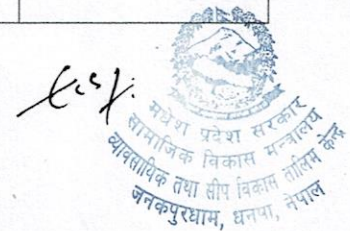 मधेश प्रदेश सरकार
सामाजिक विकास मन्त्रालय
व्यावसायिक तथा सीप विकास तालिम केन्द्र
जनकपुरधाम, धनुषा, नेपाल